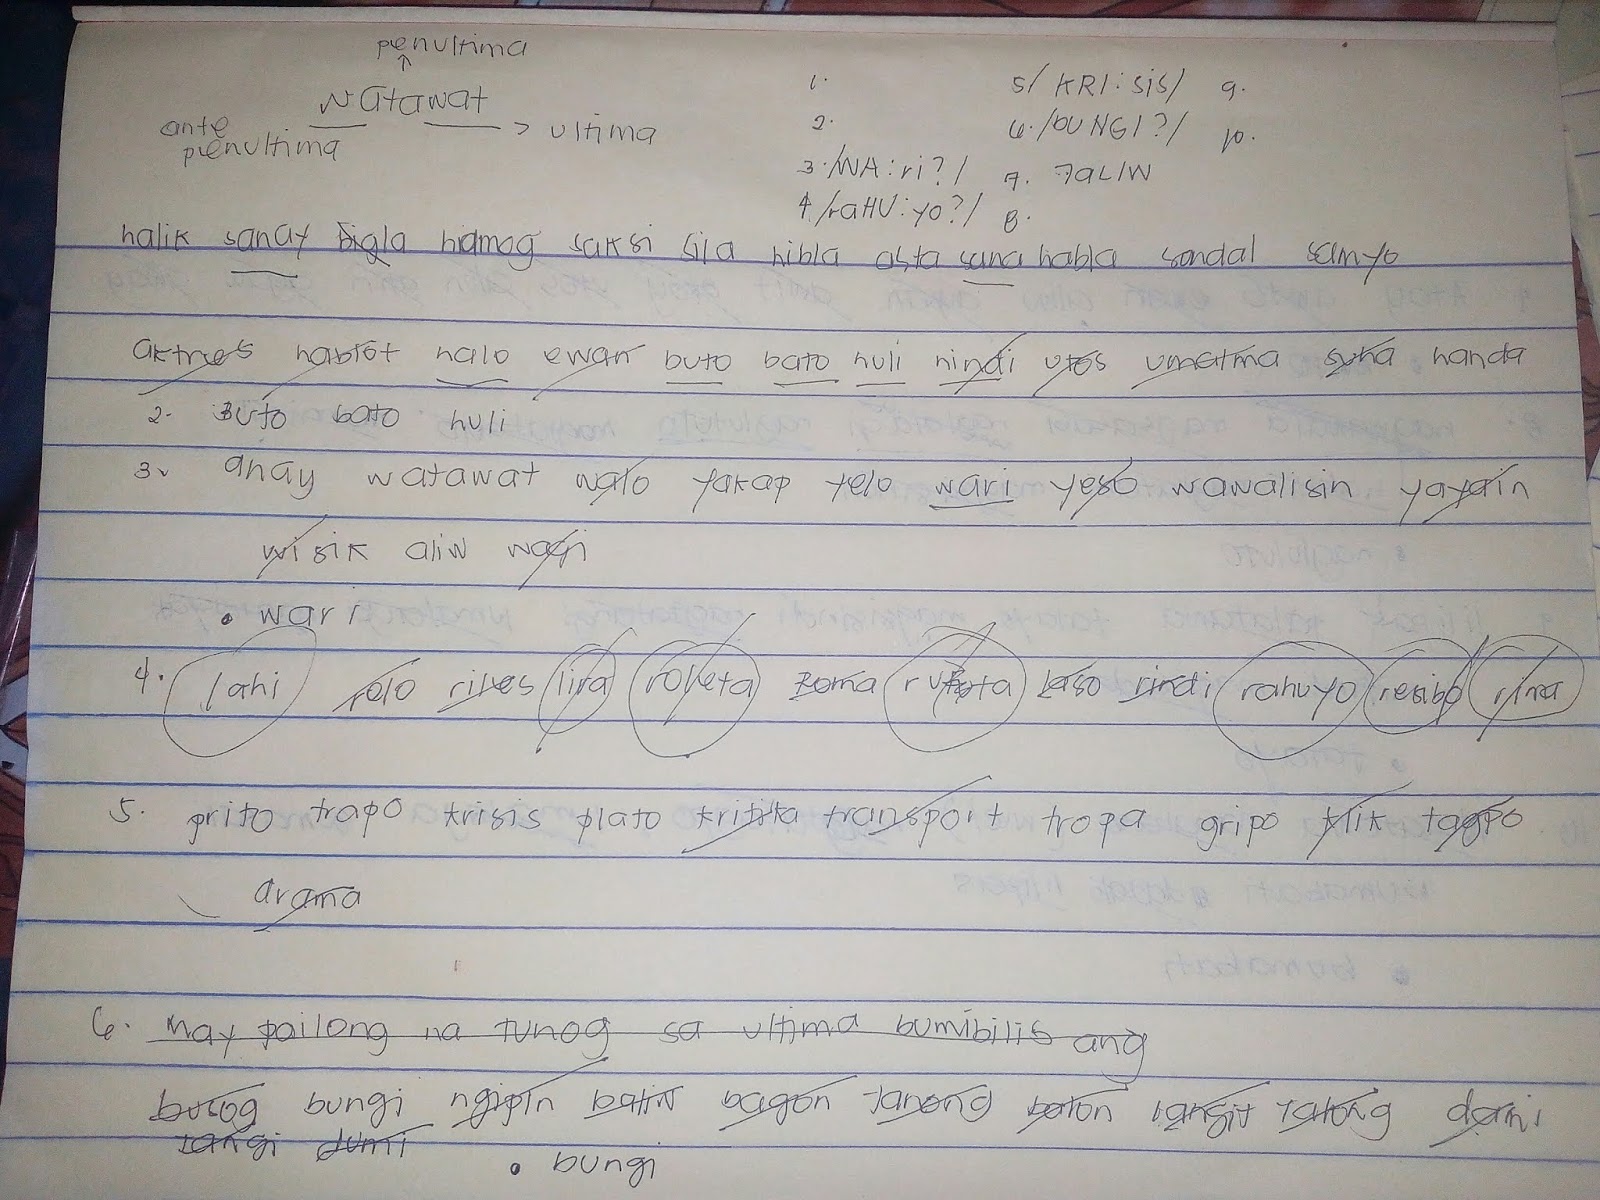 penultima
watawat
ante penultima
ultima
1.
2.
3. /WA:ri?/
4. /raHU:yo?/
5/ KRI:sis/
6. /bUNGI?/
7. 7aLIW
8.
9.
10.
halik sanay bigla hamog saksi sila hibla asta sana habla sandal samyo
aktres hablot halo ewan buto bato huli hindi utos umatma suha handa
2. Buto bato huli
3. anay watawat walo yakap yelo wari yeso wawalisin yayain
wisik aliw wagi
• wari
4. lahi relo rikes lira roleta Roma laso rindi rahuyo resibo rima
5. prito trapo krisis plato kritika transport tropa gripo klik tagpo
drama
6. May pailong na tunog sa ultima bumibilis ang
busog bungi ngipin baliw bagon tanong baton langit talong dami
tangi dumi
• bungi